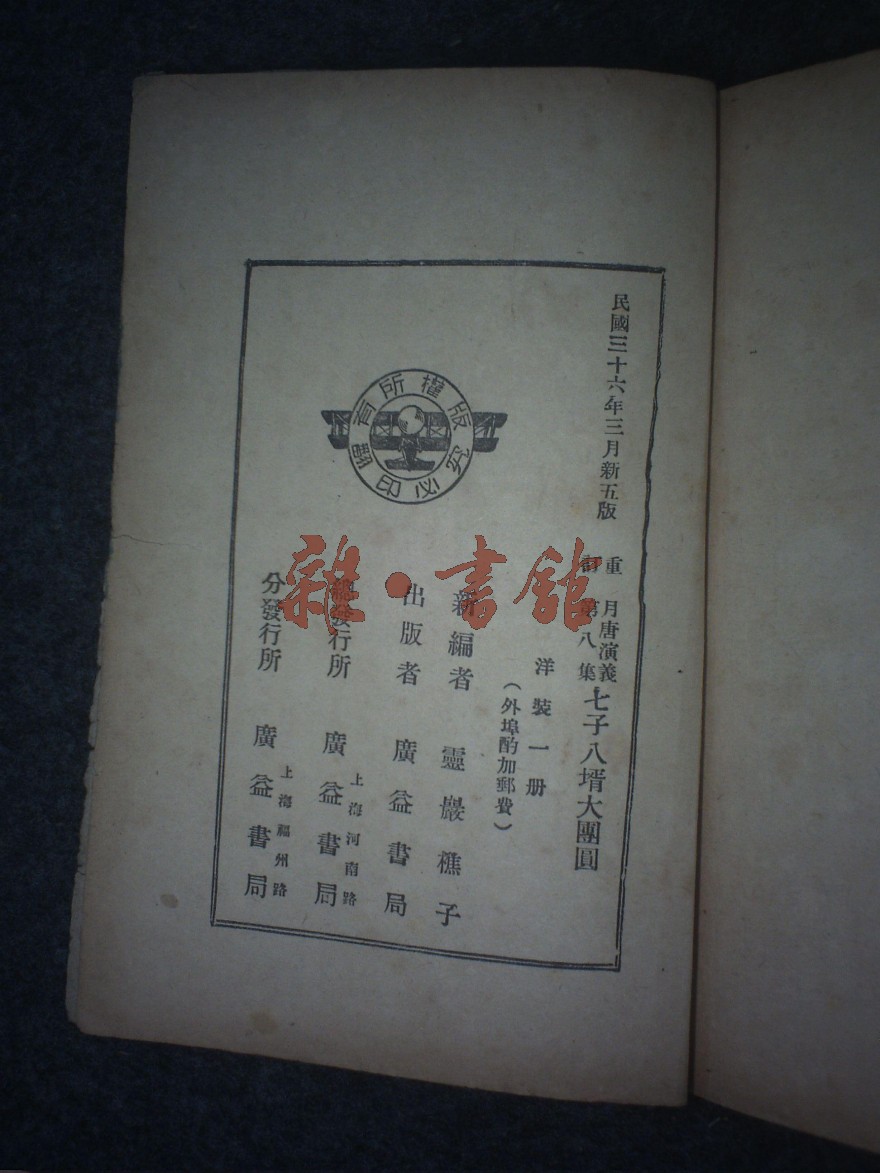 民國三十六年三月新五版
重訂 月唐演義第八集 七子八壻大團圓
洋裝一册
(外埠酌加郵費)
新編者 靈巖樵子
出版者 廣益書局
總發行所 上海河南路 廣益書局
分發行所 上海福州路 廣益書局
版權所有
翻印必究
雜·書館